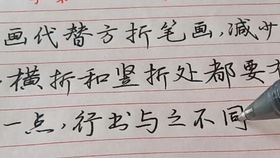 画代替方折笔画,减少
横折和竖折处都要
一点,行书与之不同